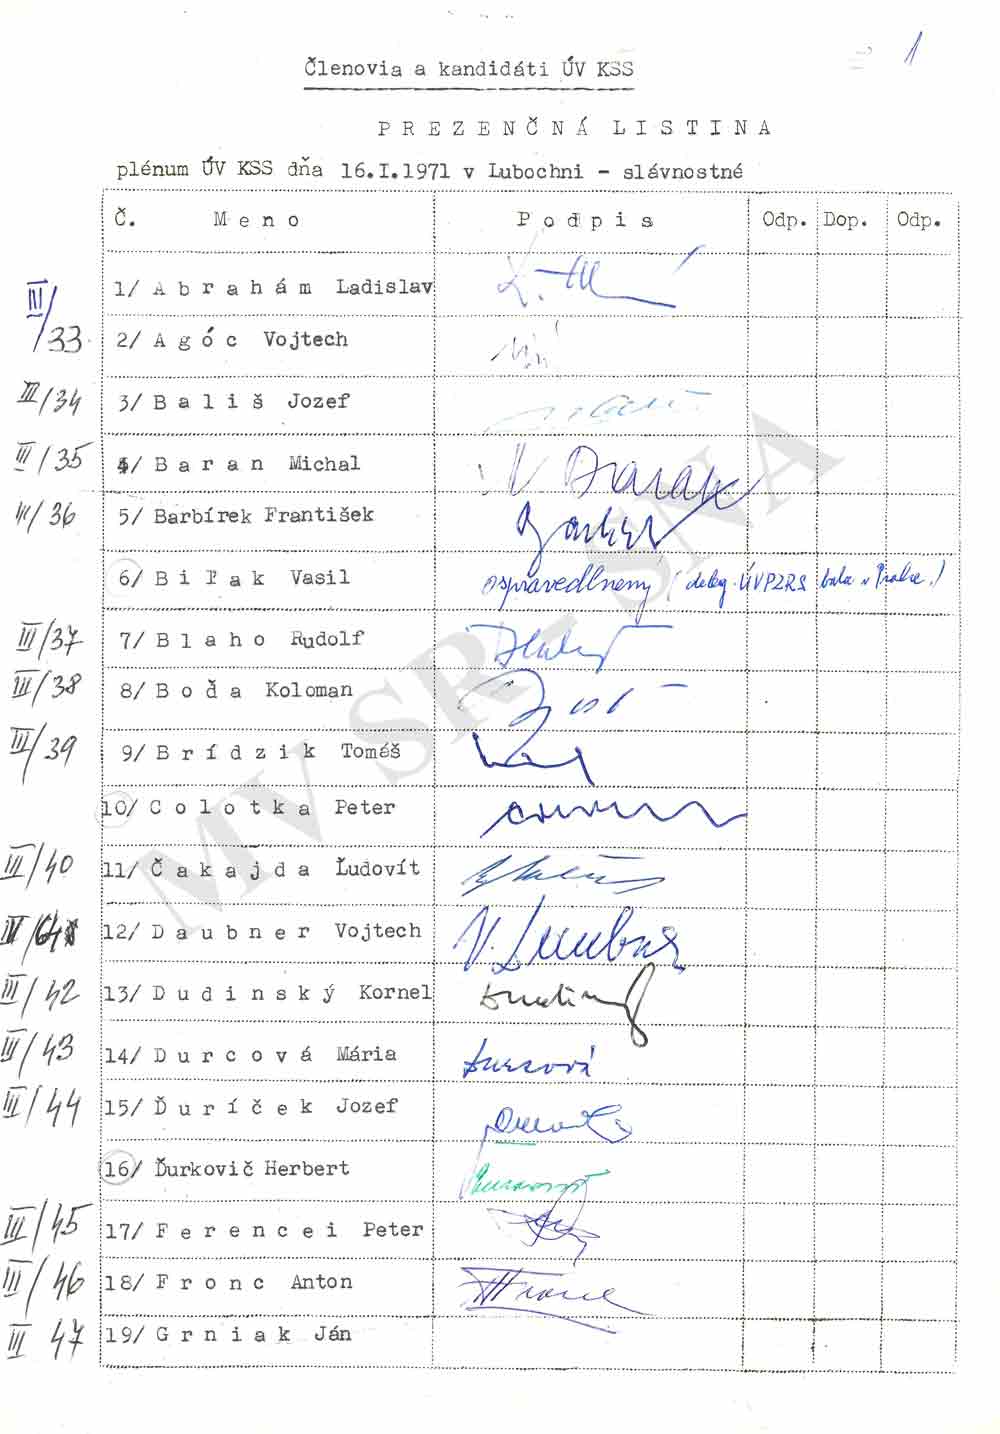 1
Členovia a kandidáti ÚV KSS
PREZENČNÁ LISTINA
plénum ÚV KSS dňa 16.I.1971 v Lubochni - slávnostné
Č. Meno Podpis Odp. Dop. Odp.
1/ Abrahám Ladislav
III/33 2/ Agóc Vojtech
III/34 3/ Bališ Jozef
III/35 4/ Baran Michal
III/36 5/ Barbírek František
6/ Biľak Vasil ospravedlnený (deleg. ÚVPZRS bola v Prahe.)
III/37 7/ Blaho Rudolf
III/38 8/ Boďa Koloman
III/39 9/ Brídzik Tomáš
10/ Colotka Peter
III/40 11/ Čakajda Ľudovít
12/ Daubner Vojtech
III/42 13/ Dudinský Kornel
III/43 14/ Durcová Mária Durcová
III/44 15/ Ďuríček Jozef
16/ Ďurkovič Herbert
III/45 17/ Ferencei Peter
III/46 18/ Fronc Anton
III 47 19/ Grniak Ján
MV SR - SNA